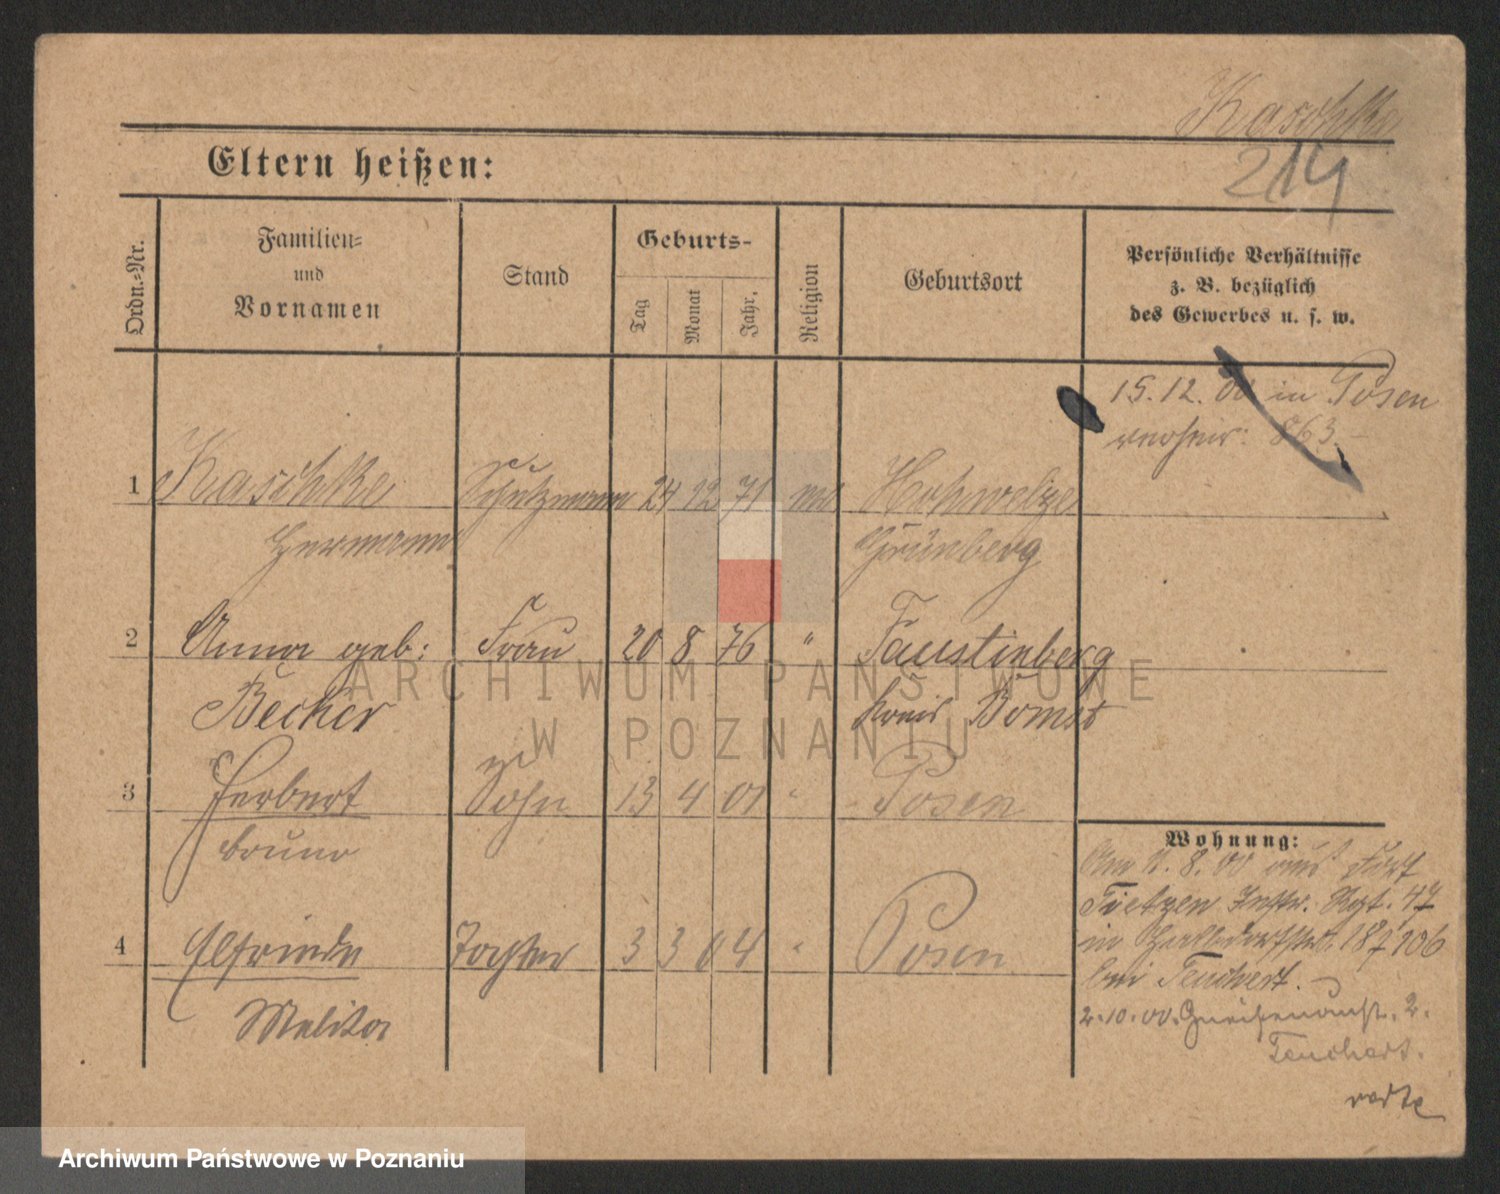 Kaschke
214
Eltern heißen:
Ordn.-Nr.
Familien-
und
Vornamen
Stand
Geburts-
Tag
Monat
Jahr.
Religion
Geburtsort
Persönliche Verhältnisse
z. B. bezüglich
des Gewerbes u. s. w.
15.12.00 in Posen
verheir: 863.
1 Kaschke Schutzmann 24 12 71
Hermann Grünberg
2 Anna geb: Frau 20 8 76 " Faustinberg
Becker Kreis Bomst
3 Herbert Sohn 13 4 01 " Posen
Bruno
4 Elfriede Tochter 3 3 04 " Posen
Melitta
Wohnung:
Am 8.00 aus Fort
Tietzen Inftr. Rgt. 47
in
bei Teuchert.
2.10.00. Gneisenaustr. 2.
Teuchert.
ARCHIWUM PAŃSTWOWE
W POZNANIU
Archiwum Państwowe w Poznaniu